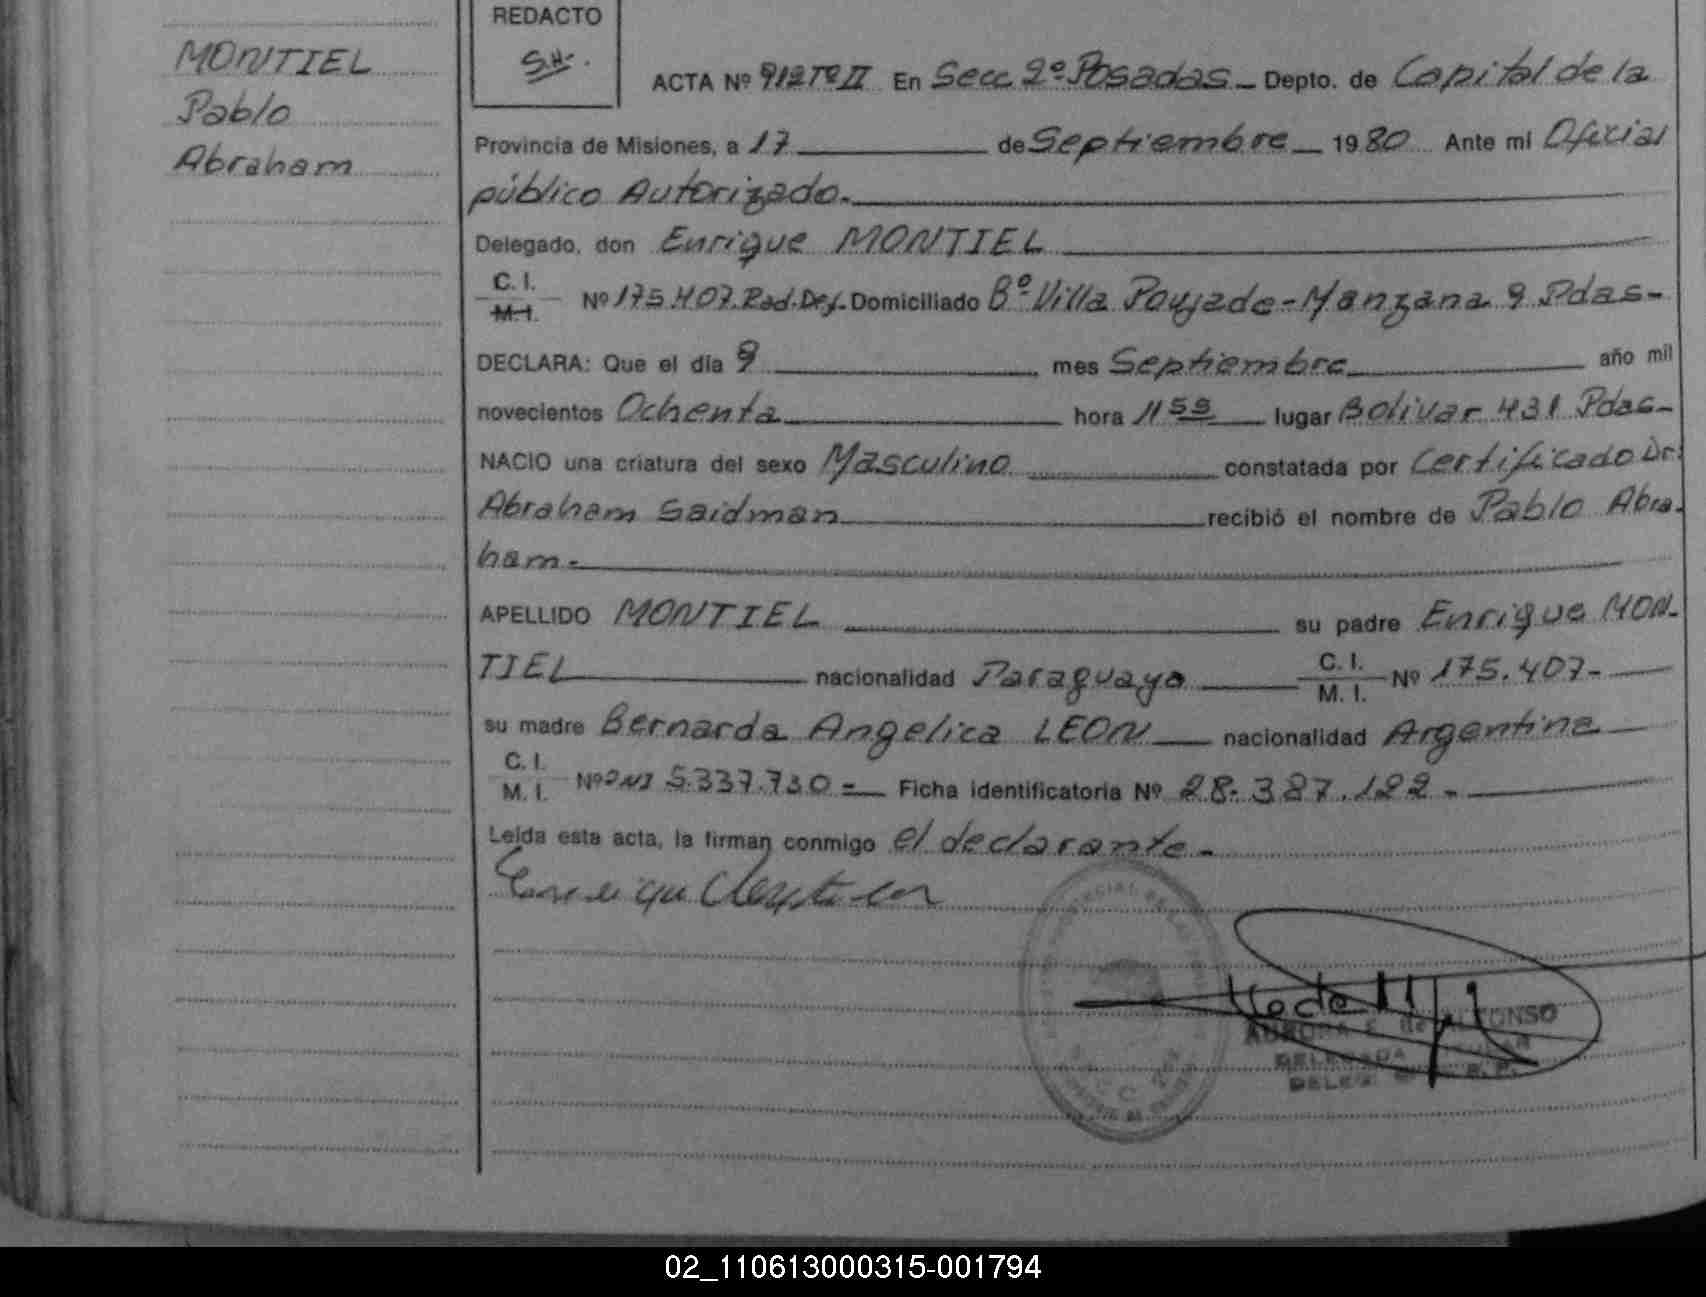 MONTIEL
Pablo
Abraham
REDACTO
S.H.
ACTA Nº 912 Tº II En Secc 2º Posadas - Depto. de Capital de la
Provincia de Misiones, a 17 de Septiembre 1980 Ante mi Oficial
público Autorizado.
Delegado, don Enrique MONTIEL
C. I.
M. I. Nº 175.407.Rad.Def. Domiciliado Bº Villa Poujade - Manzana 9 Pdas-
DECLARA: Que el día 9 mes Septiembre año mil
novecientos Ochenta hora 11 55 lugar Bolivar 431 Pdas-
NACIO una criatura del sexo Masculino constatada por Certificado Dr:
Abraham Saidman recibió el nombre de Pablo Abra-
ham-
APELLIDO MONTIEL su padre Enrique MON-
TIEL nacionalidad Paraguaya C. I.
M. I. Nº 175.407-
su madre Bernarda Angelica LEON nacionalidad Argentina
C. I.
M. I. Nº DNI 5.337.730 - Ficha identificatoria Nº 28.387.122 -
Leída esta acta, la firman conmigo el declarante -
AURORA E. de ALFONSO
DELEGADA TITULAR
02_110613000315-001794